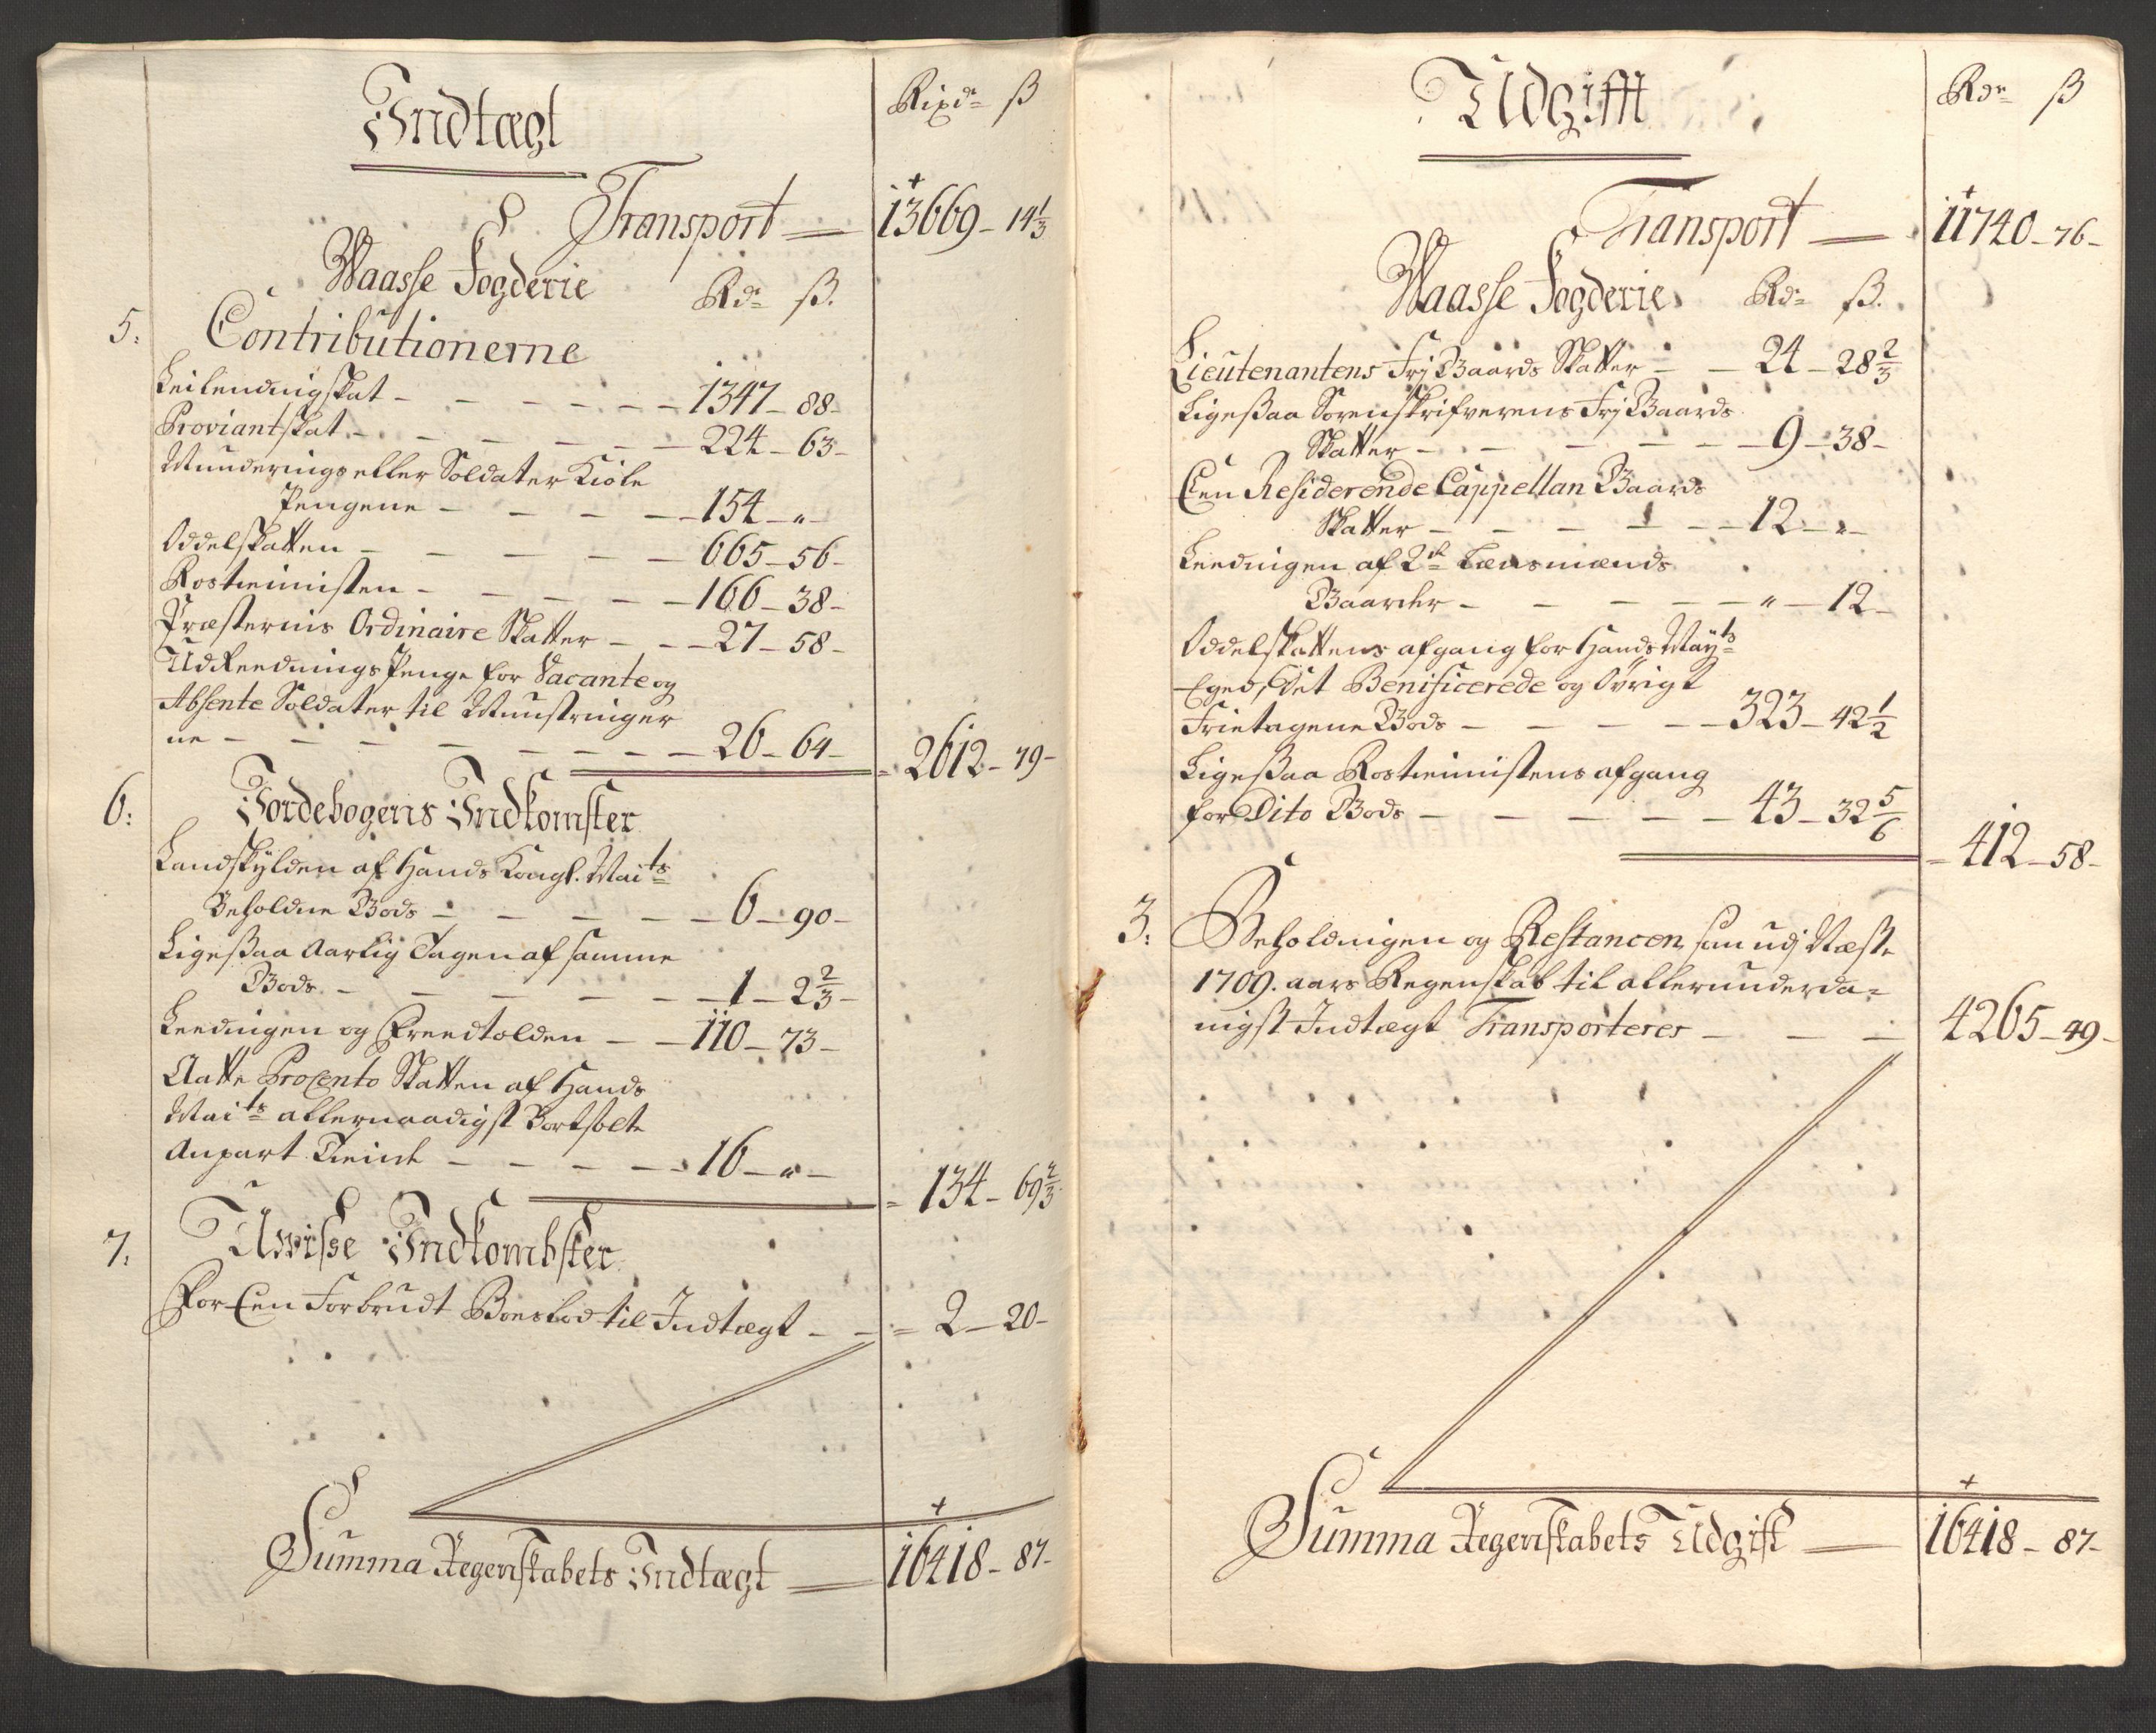 Indtægt
Rixd ß
Transport 13669 - 14 1/3
Waasse Fogderie Rd ß.
5. Contributionerne
Leilendingskat - 1347 - 88 -
Proviantskat - 224 - 63 -
Munderings eller Soldater Kiole
Pengene - 154 - " -
Oddelskatten - 665 - 56 -
Rostienisten - 166 - 38 -
Præsternis Ordinaire Skatter - 27 - 58 -
Udreednings Penge for Vacante og
Absente Soldater til Mønstringer
ne - 26 - 64 - 2612 - 79 -
6: Jordebogens Indkomster
Landskylden af Hands Kongl. Maits
Beholdne Gods - 6 - 90 -
Ligesaa Aarlig Tagen af samme
Gods - 1 - 2 2/3 -
Leedingen og Kreedtolden - 110 - 73 -
Aatte Procento Skatten af Hands
Maits allernaadigst Bortsolte
Anpart Tiende - 16 - " - 134 - 69 2/3
7: Uwisse Indkombster
For Een Forbrudt Boeslod til Indtægt - 2 - 20 -
Summa Regenskabets Indtægt 16418 - 87 -
Udgifft
Rdr ß
Transport 11740 - 76 -
Waasse Fogderie Rdr ß.
Lieutenantens Frj Gaards Skatter - 24 - 28 2/3
Ligesaa Sorenskrifverens Frj Gaards
Skatter - 9 - 38 -
Een Residerende Cappellan Gaards
Skatter - 12 - " -
Leedingen af 2de Lænsmænds
Gaarder - " - 12 -
Oddelskattens afgang for Hands Mayts
Eged, det Benificerede og Øvrigt
Frietagene Gods - 323 - 42 1/2
Ligesaa Rostienistens afgang
for Dito Gods - 43 - 32 5/6 412 - 58 -
3: Beholdningen og Restancen, som udj Næste
1709. aars Regenskab til allerunderda=
nigst Indtægt Transporteres - 4265 - 49 -
Summa Regenskabets Udgift 16418 - 87 -